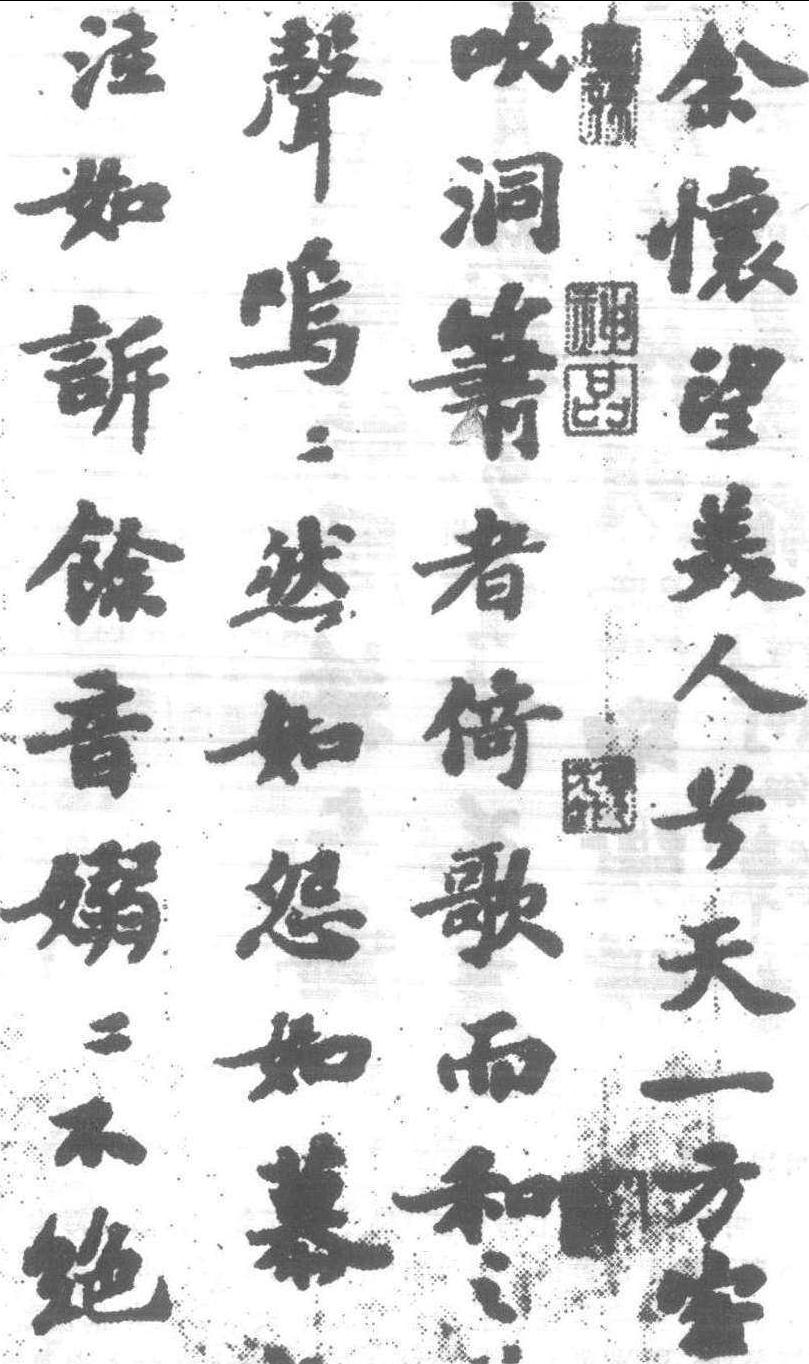 余懷望美人兮天一方客
吹洞簫者倚歌而和之
聲嗚〻然如怨如慕
泣如訴餘音嫋〻不絕
神品